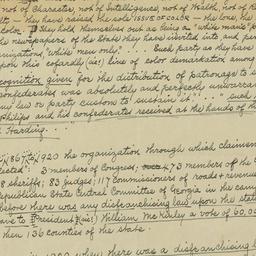 not of Character, not of Intelligence, not of Wealth, not of R
lt - They have raised the sole ISSUE OF COLOR - Hes low, the
color. They hold themselves out as being a "white man's" p
the newspapers of the State they have invited into, and per
anization, "White men only." ... Such party as they have
upon this cofardly (sic) line of color demarkation among
ecognition given for the distribution of patronage to s
onfederates was absolutely and perfectly unwarran
ny law or party custom to sustain it." ... "such
Philips and his confederates received at the hands of th
d Harding...
1867 to 1920 the organization through which claimen
lected: 3 members of Congress; 473 members of the G
8 Sheriffs; 83 judges; 117 Commissioners of roads & revenu
Republican State Central Committee of Georgia in the cam
before there was any disfranchising law upon the statu
ave to President (sic) William McKinley a vote of 60,0
then 136 counties of the state.
1920 when there was a disfranchising l